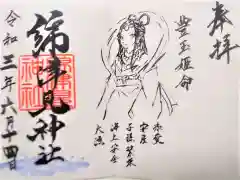 奉拝
豊玉姫命
恋愛
安産
子孫繁栄
海上安全
大漁
綿津見神社
令和三年六月十四日